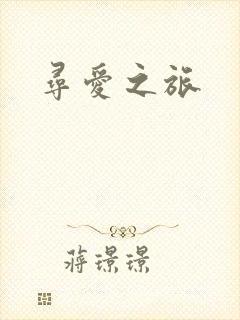 尋愛之旅
蔣璟璟